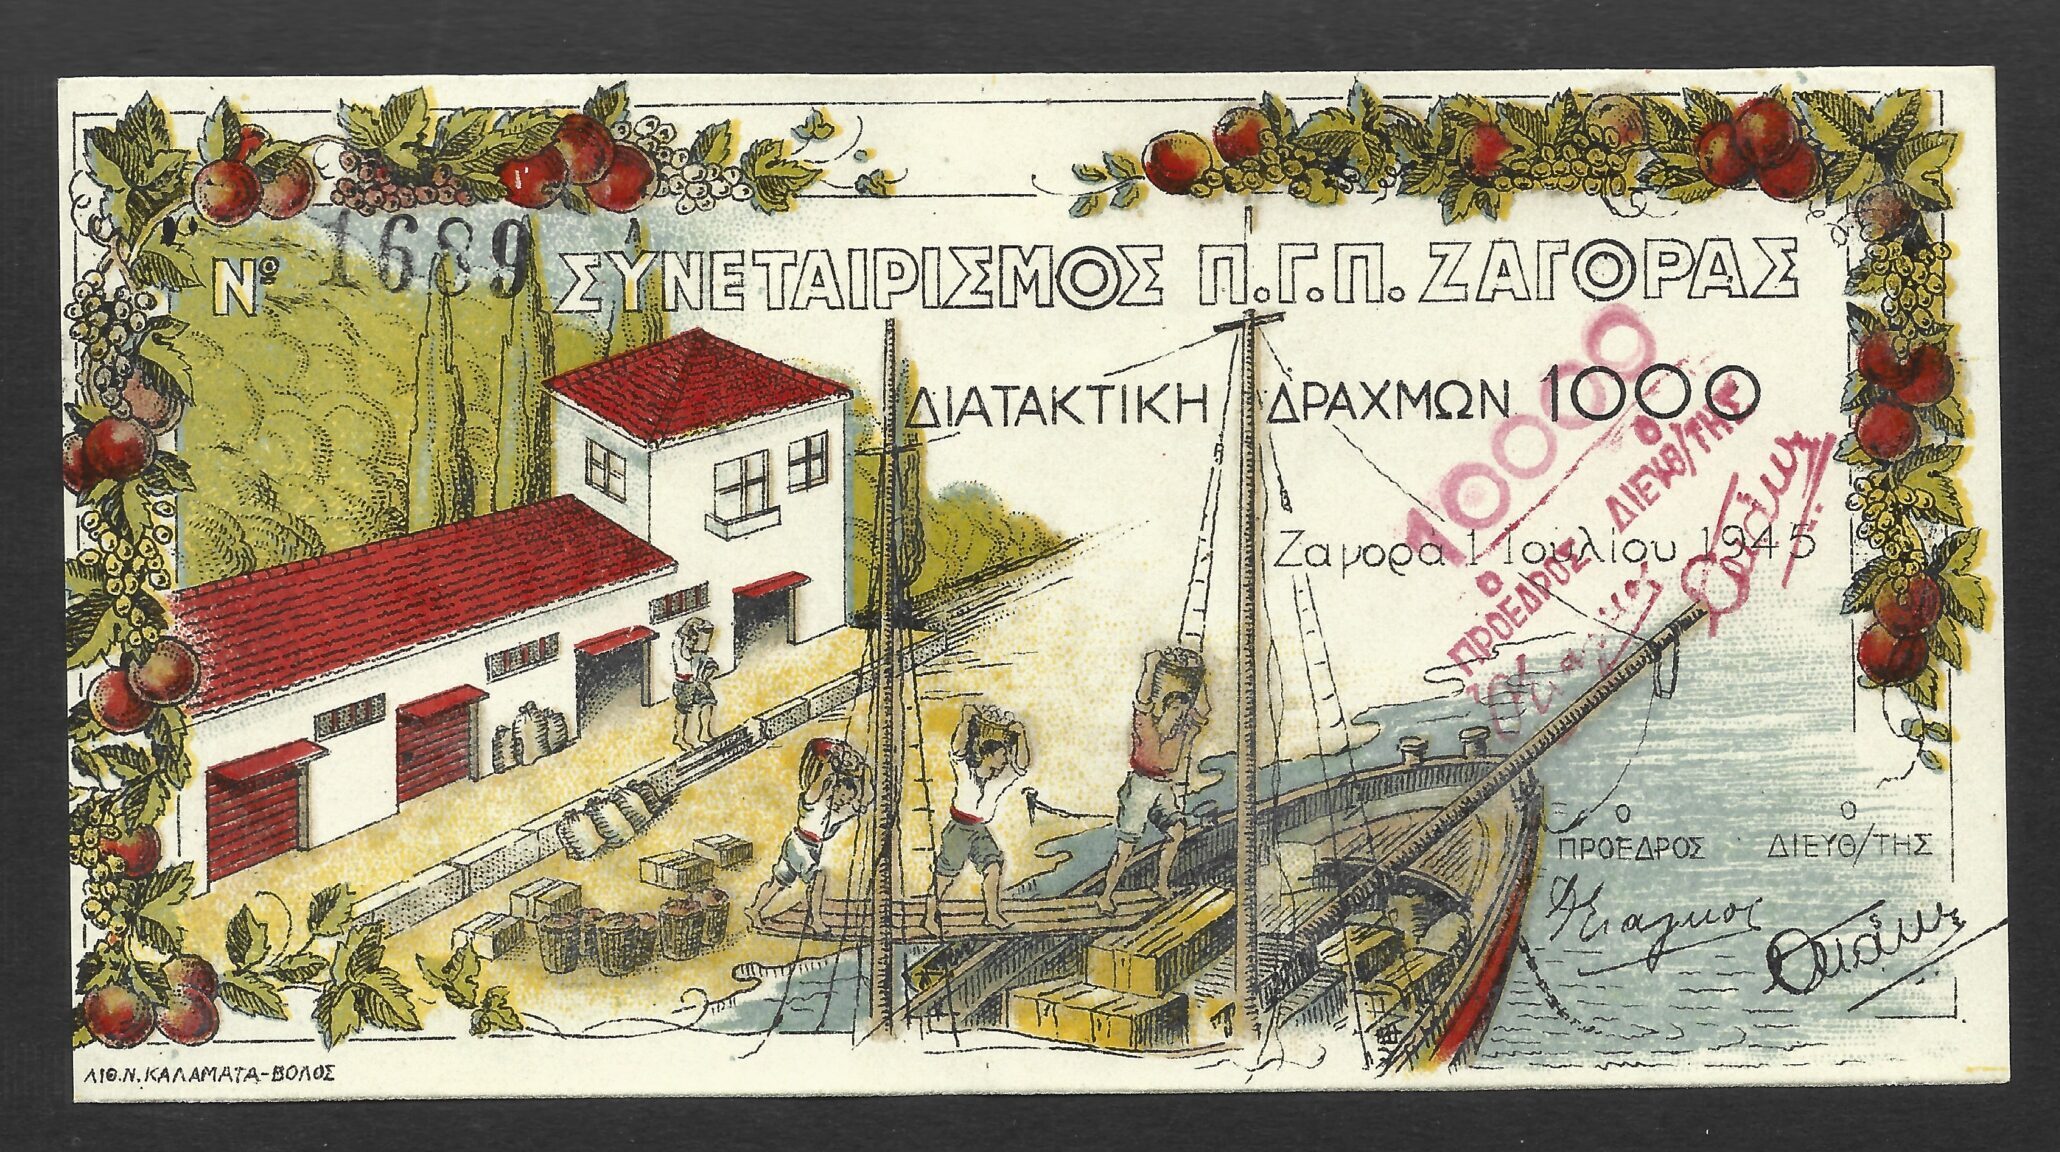 Νº 1689 ΣΥΝΕΤΑΙΡΙΣΜΟΣ Π.Γ.Π. ΖΑΓΟΡΑΣ
ΔΙΑΤΑΚΤΙΚΗ ΔΡΑΧΜΩΝ 1000
10000
Ζαγορά 1 Ιουλίου 1945
Ο ΠΡΟΕΔΡΟΣ
Ο ΔΙΕΥΘ/ΤΗΣ
Ο ΠΡΟΕΔΡΟΣ
Ο ΔΙΕΥΘ/ΤΗΣ
ΛΙΘ.Ν.ΚΑΛΑΜΑΤΑ-ΒΟΛΟΣ